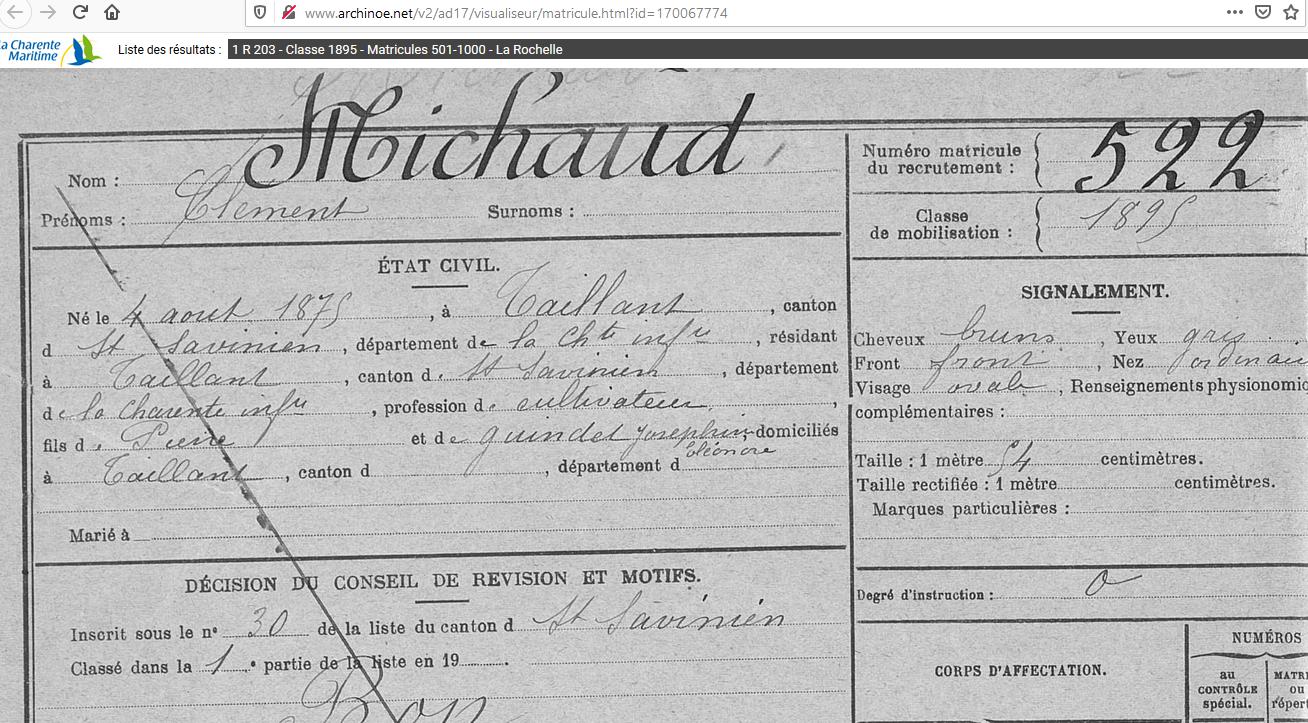 www.archinoe.net/v2/ad17/visualiseur/matricule.html?id=170067774
La Charente
Maritime
Liste des résultats : 1 R 203 - Classe 1895 - Matricules 501-1000 - La Rochelle
Nom : Michaud
Prénoms : Clement Surnoms :
Numéro matricule
du recrutement : 522
Classe
de mobilisation : 1895
ÉTAT CIVIL.
Né le 4 aout 1875, à Taillant, canton
d St Savinien, département de la Chte infre, résidant
à Taillant, canton d. St Savinien, département
de la Charente infre, profession d. cultivateur,
fils d. Pierre et de guindet Josephine, domiciliés
Eléonore
à Taillant, canton d , département d
Marié à
SIGNALEMENT.
Cheveux bruns, Yeux gris
Front front, Nez ordinai
Visage ovale, Renseignements physionomi
complémentaires :
Taille : 1 mètre 54 centimètres.
Taille rectifiée : 1 mètre centimètres.
Marques particulières :
Degré d'instruction : 0
DÉCISION DU CONSEIL DE REVISION ET MOTIFS.
Inscrit sous le n° 30 de la liste du canton d St Savinien
Classé dans la 1 e partie de la liste en 19 .
Bon
CORPS D'AFFECTATION.
NUMÉROS
au
CONTRÔLE
spécial.
MATRI
ou
réper